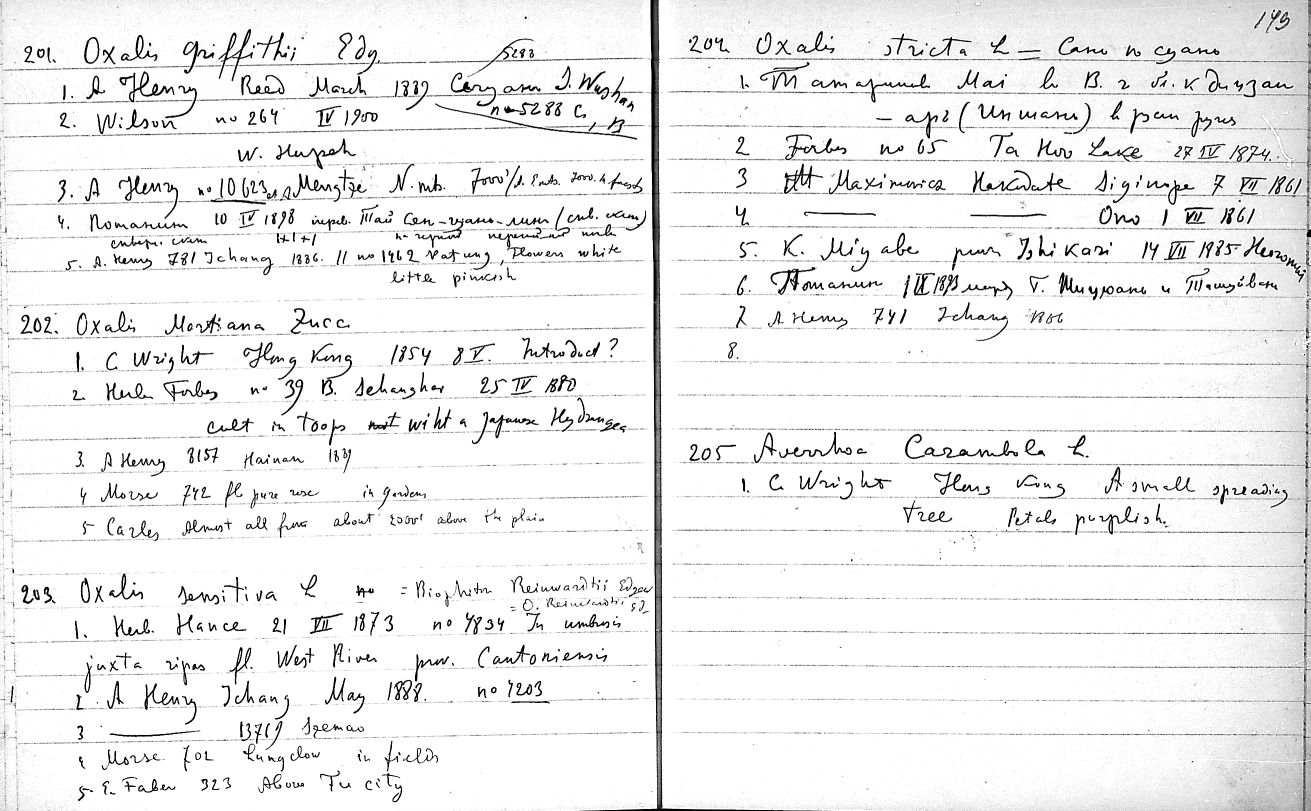 201. Oxalis Griffithii Edg.
5288
1. A Henry Reed March 1889 S. Wushan
no 5288 C, B
2. Wilson no 264 IV 1900
W. Hupeh
3. A Henry no 10623 Mengtze N. mts. 7000'
4. Потанин 10 IV 1898
5. A. Henry 781 Ichang 1886. // no 1462 Patung, Flowers white
little pinkish
202. Oxalis Martiana Zucc
1. C Wright Hong Kong 1854 8 V. Introduct?
2. Herb Forbes no 39 B. Schanghai 25 IV 1880
cult in toops wiht a Japanese Hydrangea
3. A Henry 8157 Hainan 1889
4 Morse 742 fl pure rose in gardens
5 Carles Almost all from about 2000' above the plain
203. Oxalis sensitiva L = Biophytum Reinwardtii Edgew
= O. Reinwardtii
1. Herb. Hance 21 VII 1873 no 4834 In umbrosis
juxta ripas fl. West River prov. Cantoniensis
2 A Henry Ichang May 1888. no 4203
3 ——— 13719 Szemao
4 Morse 702 Lungchow in fields
5. E. Faber 323 Above Fu city
143
204. Oxalis stricta L —
1. Татаринов Mai
2 Forbes no 65 Ta Hoo Lake 27 IV 1874.
3 Maximowicz Hakodate Siginope 7 VII 1861
4. ——— ——— Ono 1 VII 1861
5. K. Miyabe prov Ishikari 14 VII 1885
6. Потанин 1893
7 A Henry 741 Ichang 1886
8.
205 Averrhoa Carambola L.
1. C. Wright Hong Kong A small spreading
tree Petals purplish.